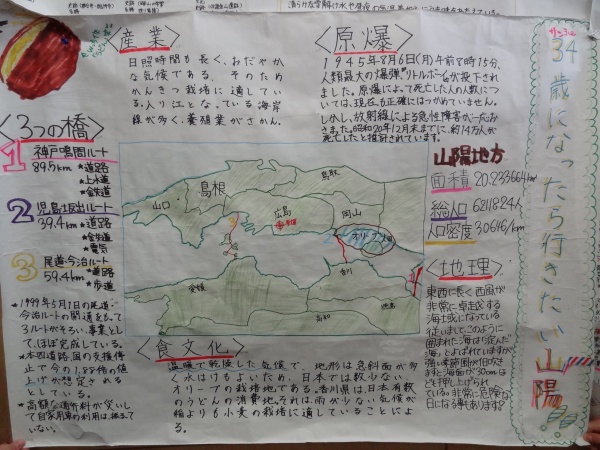 34歳になったら行きたい山陽
<産業>
日照時間も長く、おだやか
な気候である。そのため
かんきつ栽培に適してい
る。入り江となっている海岸
線が多く、養殖業がさかん。
<原爆>
1945年8月6日(月)午前8時15分、
人類最大の爆弾"リトルボーイ"が投下され
ました。原爆によって死亡した人の人数に
ついては、現在も正確にはつかめていません。
しかし、放射線による急性障害が一応お
さまった、昭和20年12月末までに、約14万人が
死亡したと推計されています。
<3つの橋>
1 神戸鳴門ルート
89.5km ★道路
★上水道
★鉄道
2 児島坂出ルート
39.4km ★道路
★鉄道
★電気
3 尾道・今治ルート
59.4km ★道路
★歩道
★1999年5月1日の尾道・
今治ルートの開通をもって
3ルートがそろい、事業とし
て、ほぼ完成している。
★本四道路、国の支援停
止で今の1.88倍の値
上げが想定される
としている。
★高額な通行料が災いし
て自家用車の利用は、
山口
島根
鳥取
広島
岡山
香川
愛媛
高知
徳島
山陽地方
面積
総人口
人口密度
<地理>
東西に長く西風が
非常に卓越する
海域になっている
従いましてこのように
<食文化>
温暖で乾燥した気候で、地形は急斜面が多
く水はけもよいため、日本では数少ない
オリーブの栽培地である。香川県は日本有数
のうどんの消費地。それは、雨が少ない気候が
稲よりも小麦の栽培に適していることによ
る。